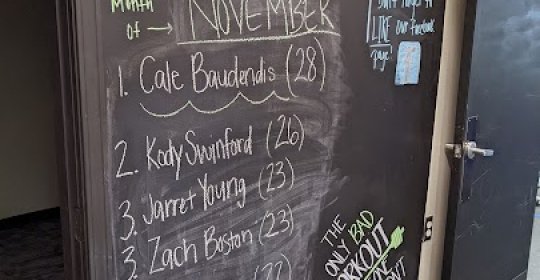 MONTH
OF → NOVEMBER
LIKE our facebook
page!
1. Cale Baudendis (28)
2. Kody Swinford (26)
3. Jarret Young (23)
3. Zach Boston (23)
THE
ONLY BAD
WORKOUT